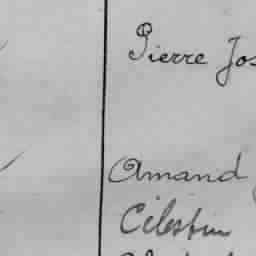 Pierre Jos
Amand
Célestin